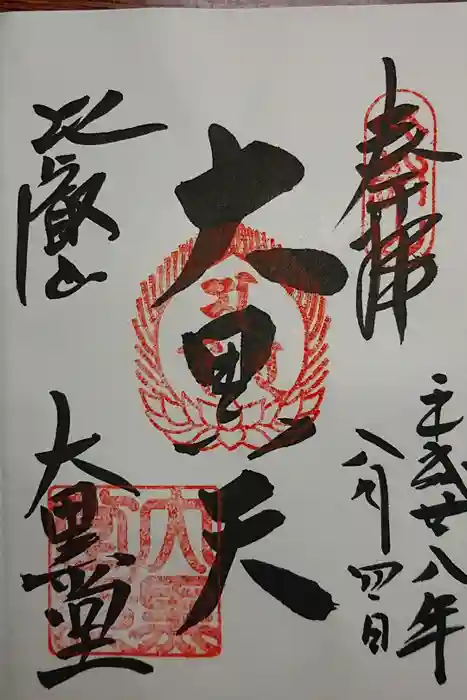 奉拝
平成廿八年
八月四日
大黒天
比叡山
大黒堂